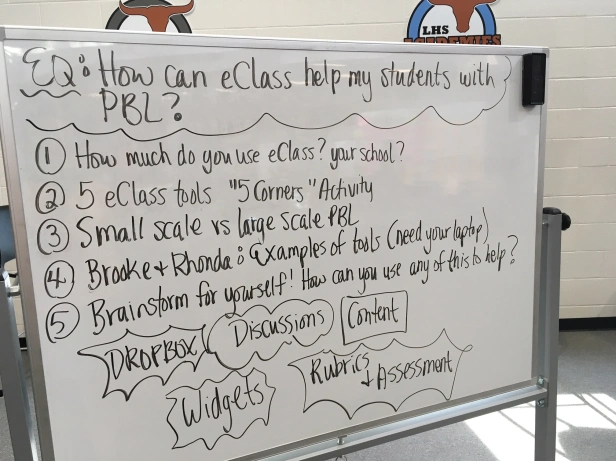 LHS
ACADEMIES
EQ: How can eClass help my students with
PBL?
① How much do you use eClass? your school?
② 5 eClass tools "5 Corners" Activity
③ Small scale vs large scale PBL
④ Brooke + Rhonda: Examples of tools (need your laptop)
⑤ Brainstorm for yourself! How can you use any of this to help?
DROPBOX
Discussions
Content
Widgets
Rubrics
+ Assessment